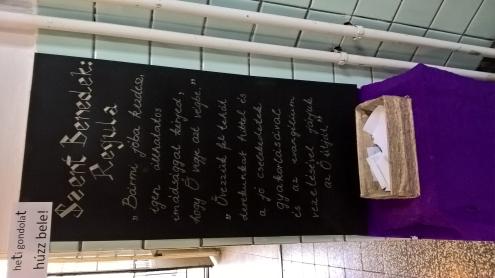 Szent Benedek:
Regula
„Bármi jóba kezdesz,
igen állhatatos
imádsággal kérjed,
hogy Ő vigye azt végbe.”
„Övezzük fel tehát
derekunkat hittel és
a jó cselekedetek
gyakorlásával
és az evangélium
vezetésével járjuk
az Ő útjait”
heti gondolat
húzz bele!